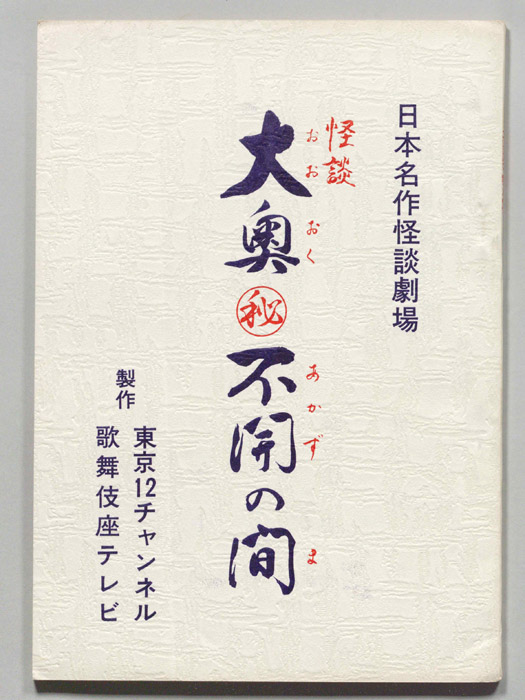 日本名作怪談劇場
怪談
大奥㊙不開の間
おおおく あかず ま
製作
東京12チャンネル
歌舞伎座テレビ